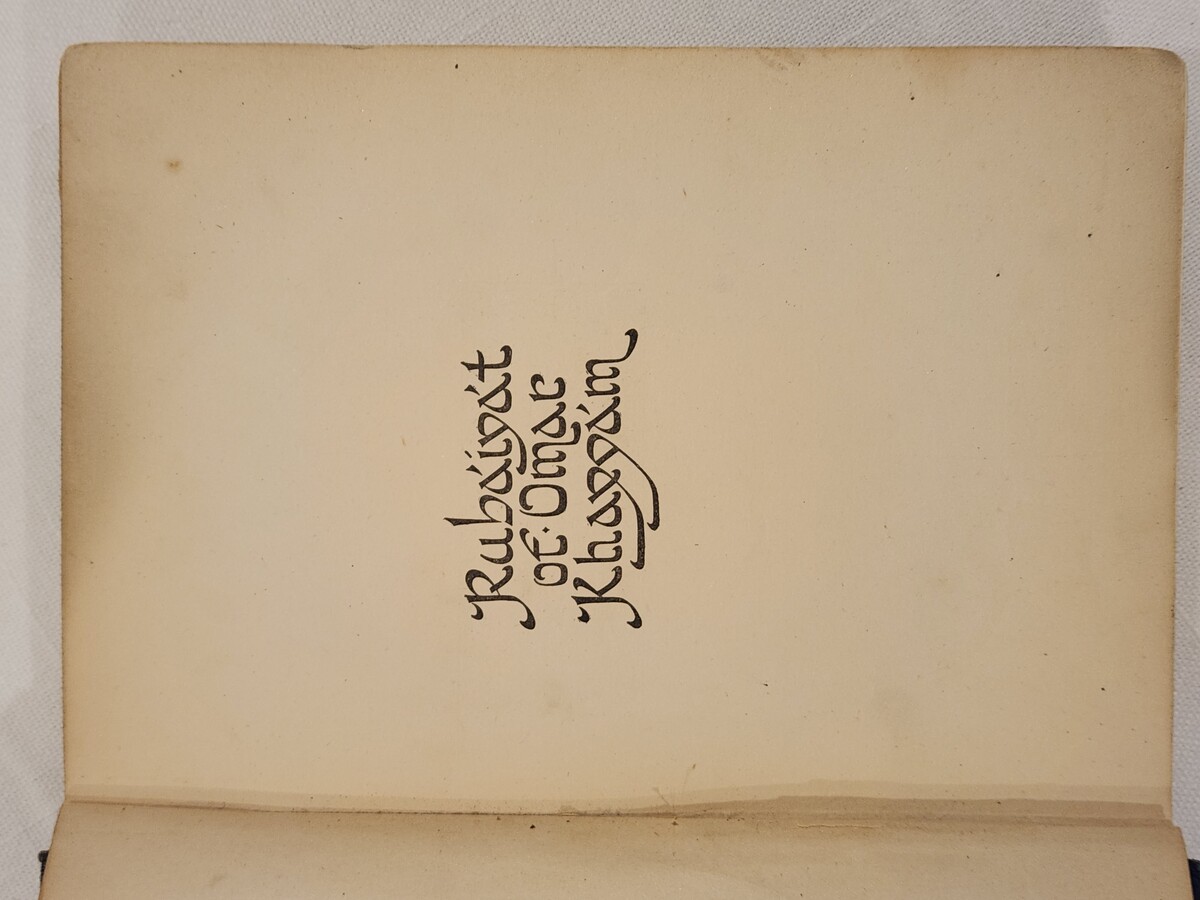 Rubáiyát
of · Omar
Khayyám